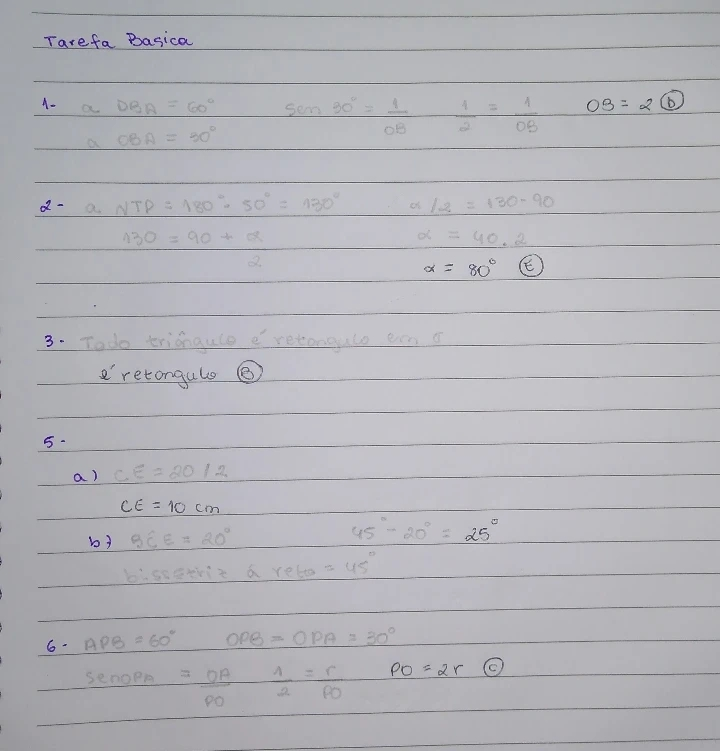 Tarefa Basica
1- a DBA = 60° Sen 30° = 1/OB 1/2 = 1/OB OB = 2 (b)
a OBA = 30°
2- a NTP = 180° - 50° = 130° α/2 = 130-90
130 = 90 + α/2 α = 40.2
α = 80° (E)
3- Todo triângulo é retangulo em
é retangulo (B)
5-
a) CE = 20/2
CE = 10 cm
b) BĈE = 20° 45° - 20° = 25°
bissetriz â reto = 45°
6- APB = 60° OPB = OPA = 30°
Sen OPA = OA/PO 1/2 = r/PO PO = 2r (c)